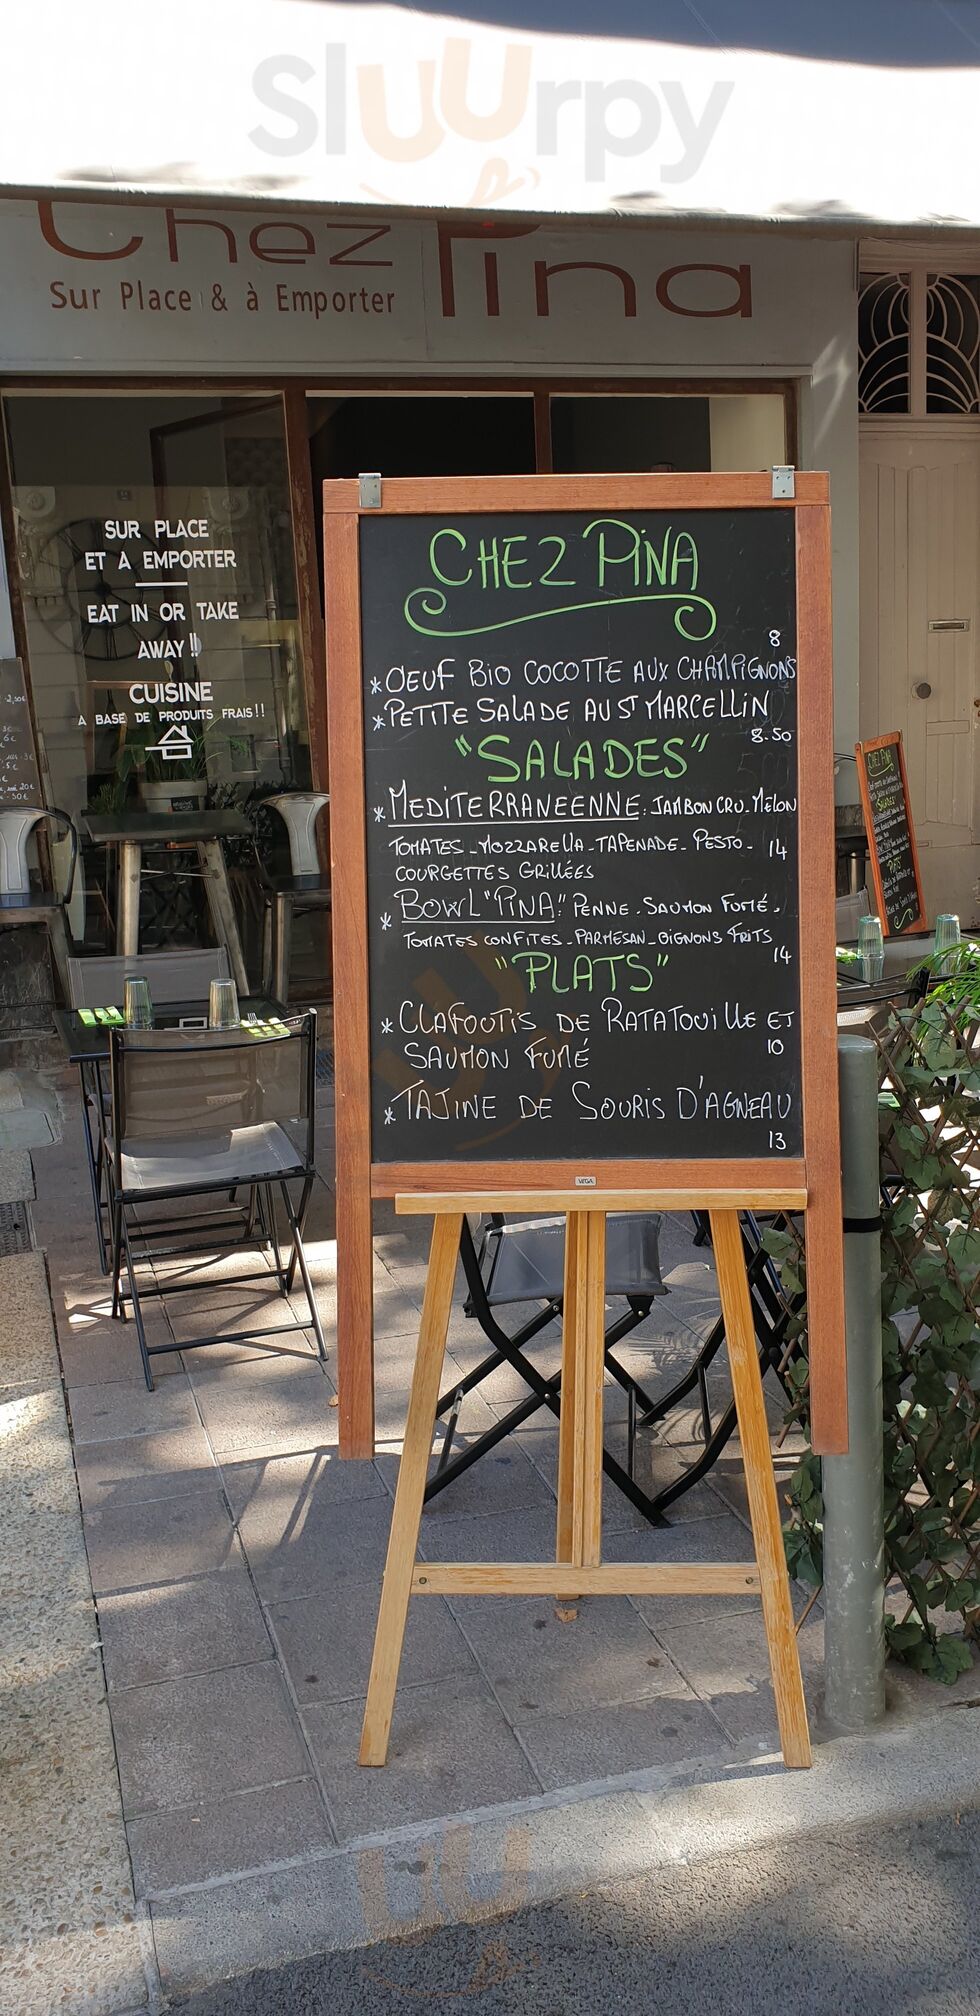 SlUUrpy
Chez Pina
Sur Place & à Emporter
SUR PLACE
ET A EMPORTER
EAT IN OR TAKE
AWAY !!
CUISINE
A BASE DE PRODUITS FRAIS !!
CHEZ PINA
8
* OEUF BIO COCOTTE AUX CHAMPIGNONS
* PETITE SALADE AU ST MARCELLIN
8.50
"SALADES"
* MEDITERRANEENNE: JAMBON CRU. MELON
TOMATES - MOZZARELLA - TAPENADE - PESTO - 14
COURGETTES GRILLÉES
* BOWL "PINA": PENNE. SAUMON FUMÉ.
TOMATES CONFITES - PARMESAN - OIGNONS FRITS
14
"PLATS"
* CLAFOUTIS DE RATATOUILLE ET
SAUMON FUMÉ 10
* TAJINE DE SOURIS D'AGNEAU
13
VEGA
CHEZ PINA